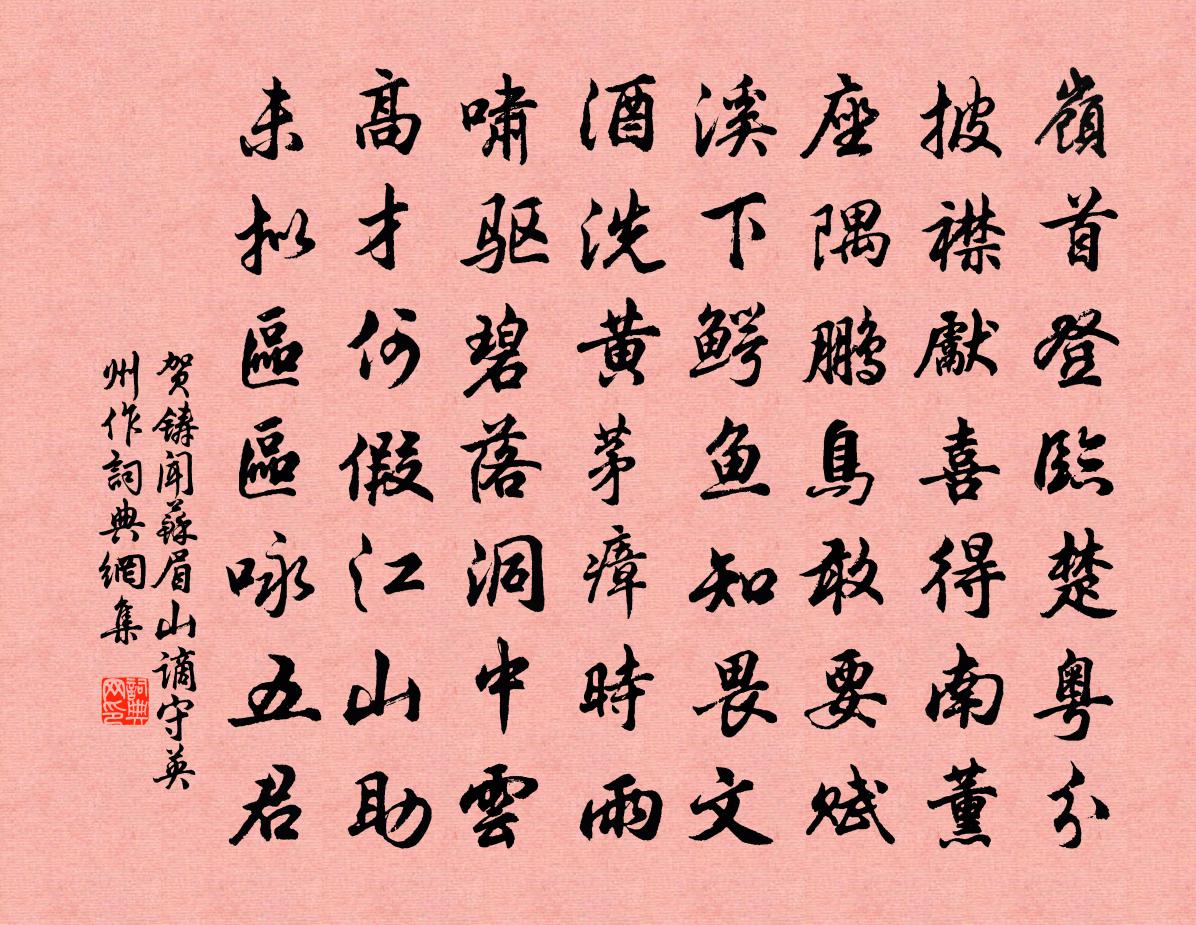 嶺首登臨楚粵分
披襟獻喜得南薰
座隅鵬鳥敢要賦
溪下鳄鱼知畏文
酒洗黄茅瘴時雨
嘯驱碧落洞中雲
高才何假江山助
未拟區區咏五君
贺铸闻蘇眉山谪守英
州作詞典網集
詞典网印